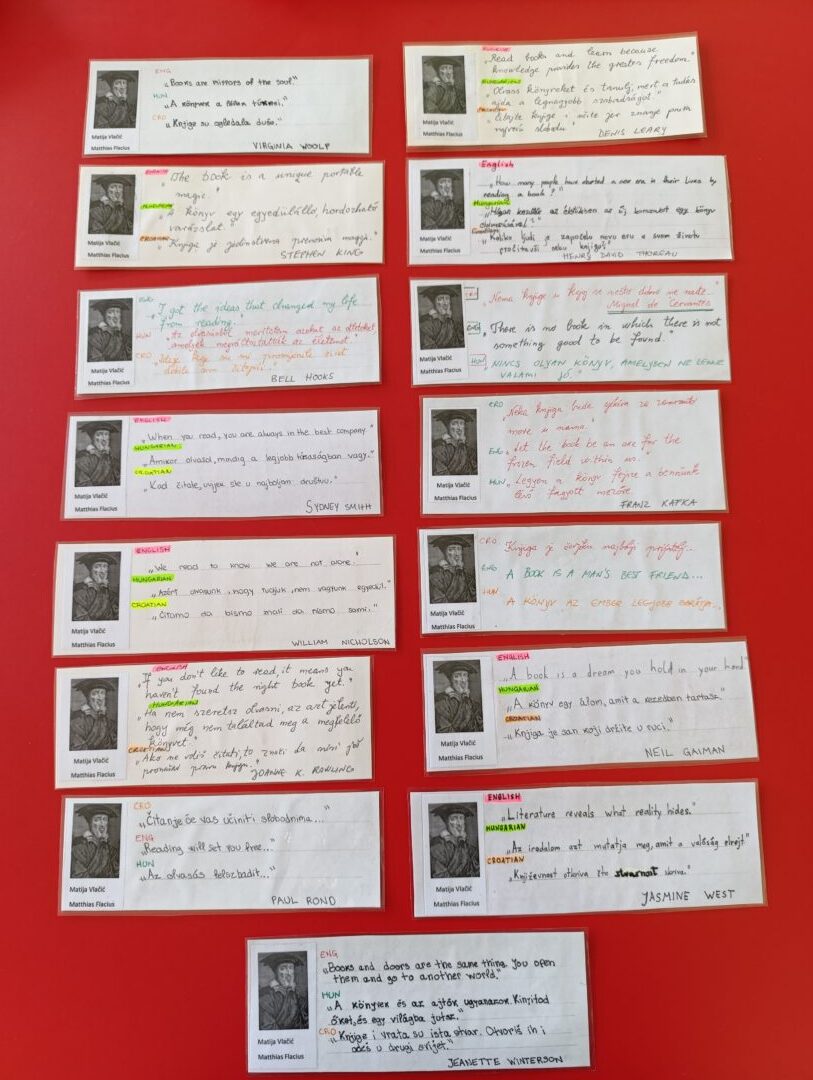 ENG
„Books are mirrors of the soul"
HUN
„A könyvek a lélek tükrei."
CRO
„Knjige su ogledala duše."
VIRGINIA WOOLF
Matija Vlačić
Matthias Flacius
ENGLISH
„The book is a unique portable
magic."
HUNGARIAN
„A könyv egy egyedülálló, hordozható
varázslat."
CROATIAN
„Knjiga je jedinstvena prenosiva magija."
STEPHEN KING
Matija Vlačić
Matthias Flacius
ENG
„I got the ideas that changed my life
from reading."
HUN
„Az olvasásból merítettem azokat az ötleteket,
amelyek megváltoztatták az életemet."
CRO
život
BELL HOOKS
Matija Vlačić
Matthias Flacius
ENGLISH
„When you read, you are always in the best company"
HUNGARIAN
„Amikor olvasol, mindig a legjobb társaságban vagy."
CROATIAN
„Kad čitate, uvijek ste u najboljem društvu."
SYDNEY SMITH
Matija Vlačić
Matthias Flacius
ENGLISH
„We read to know we are not alone."
HUNGARIAN
„Azért olvasunk, hogy tudjuk, nem vagyunk egyedül."
CROATIAN
„Čitamo da bismo znali da nismo sami."
WILLIAM NICHOLSON
Matija Vlačić
Matthias Flacius
ENGLISH
„If you don't like to read, it means you
haven't found the right book yet."
HUNGARIAN
„Ha nem szeretsz olvasni, az azt jelenti,
hogy még nem találtad meg a megfelelő
könyvet."
CROATIAN
„Ako ne voliš čitati, to znači da nisi još
pronašao pravu knjigu."
JOANNE K. ROWLING
Matija Vlačić
Matthias Flacius
CRO
„Čitanje će vas učiniti slobodnima..."
ENG
„Reading will set you free..."
HUN
„Az olvasás felszbadit..."
PAUL ROND
Matija Vlačić
Matthias Flacius
ENGLISH
„Read books and learn because
knowledge provides the greates freedom."
HUNGARIAN
„Olvass könyveket és tanulj, mert a tudás
adja a legnagyobb szabadságot."
CROATIAN
„Čitajte knjige i učite jer znanje pruža
najveću slobodu."
DENIS LEARY
Matija Vlačić
Matthias Flacius
English
„How many people have started a new era in their lives by
reading a book?"
Hungarian
könyv
elolvasásával?"
Croatian
„Koliko ljudi je započelo novu eru u svom životu
pročitavši neku knjigu?"
HENRY DAVID THOREAU
Matija Vlačić
Matthias Flacius
CRO
„Nema knjige u kojoj se nešto dobro ne nađe..."
Miguel de Cervantes
ENG
„There is no book in which there is not
something good to be found."
HUN
„NINCS OLYAN KÖNYV, AMELYBEN NE LENNE
VALAMI JÓ."
Matija Vlačić
Matthias Flacius
CRO
„Neka knjiga bude sjekira za zamrznuto
more u nama."
ENG
„Let the book be an axe for the
frozen field within us."
HUN
„Legyen a könyv fejsze a bennünk
lévő fagyott mezőre.
FRANZ KAFKA
Matija Vlačić
Matthias Flacius
CRO
Knjiga je čovjekov najbolji prijatelj...
ENG
A BOOK IS A MAN'S BEST FRIEND...
HUN
A KÖNYV AZ EMBER LEGJOBB BARÁTJA...
Matija Vlačić
Matthias Flacius
ENGLISH
„A book is a dream you hold in your hand"
HUNGARIAN
„A könyv egy álom, amit a kezedben tartasz."
CROATIAN
„Knjiga je san koji držite u ruci."
NEIL GAIMAN
Matija Vlačić
Matthias Flacius
ENGLISH
„Literature reveals what reality hides."
HUNGARIAN
„Az irodalom azt mutatja meg, amit a valóság elrejt"
CROATIAN
„Književnost otkriva što stvarnost skriva."
JASMINE WEST
Matija Vlačić
Matthias Flacius
ENG
„Books and doors are the same thing. You open
them and go to another world."
HUN
„A könyvek és az ajtók ugyanazok. Kinyitod
őket, és egy világba jutsz."
CRO
„Knjige i vrata su ista stvar. Otvoriš ih i
odeš u drugi svijet."
JEANETTE WINTERSON
Matija Vlačić
Matthias Flacius